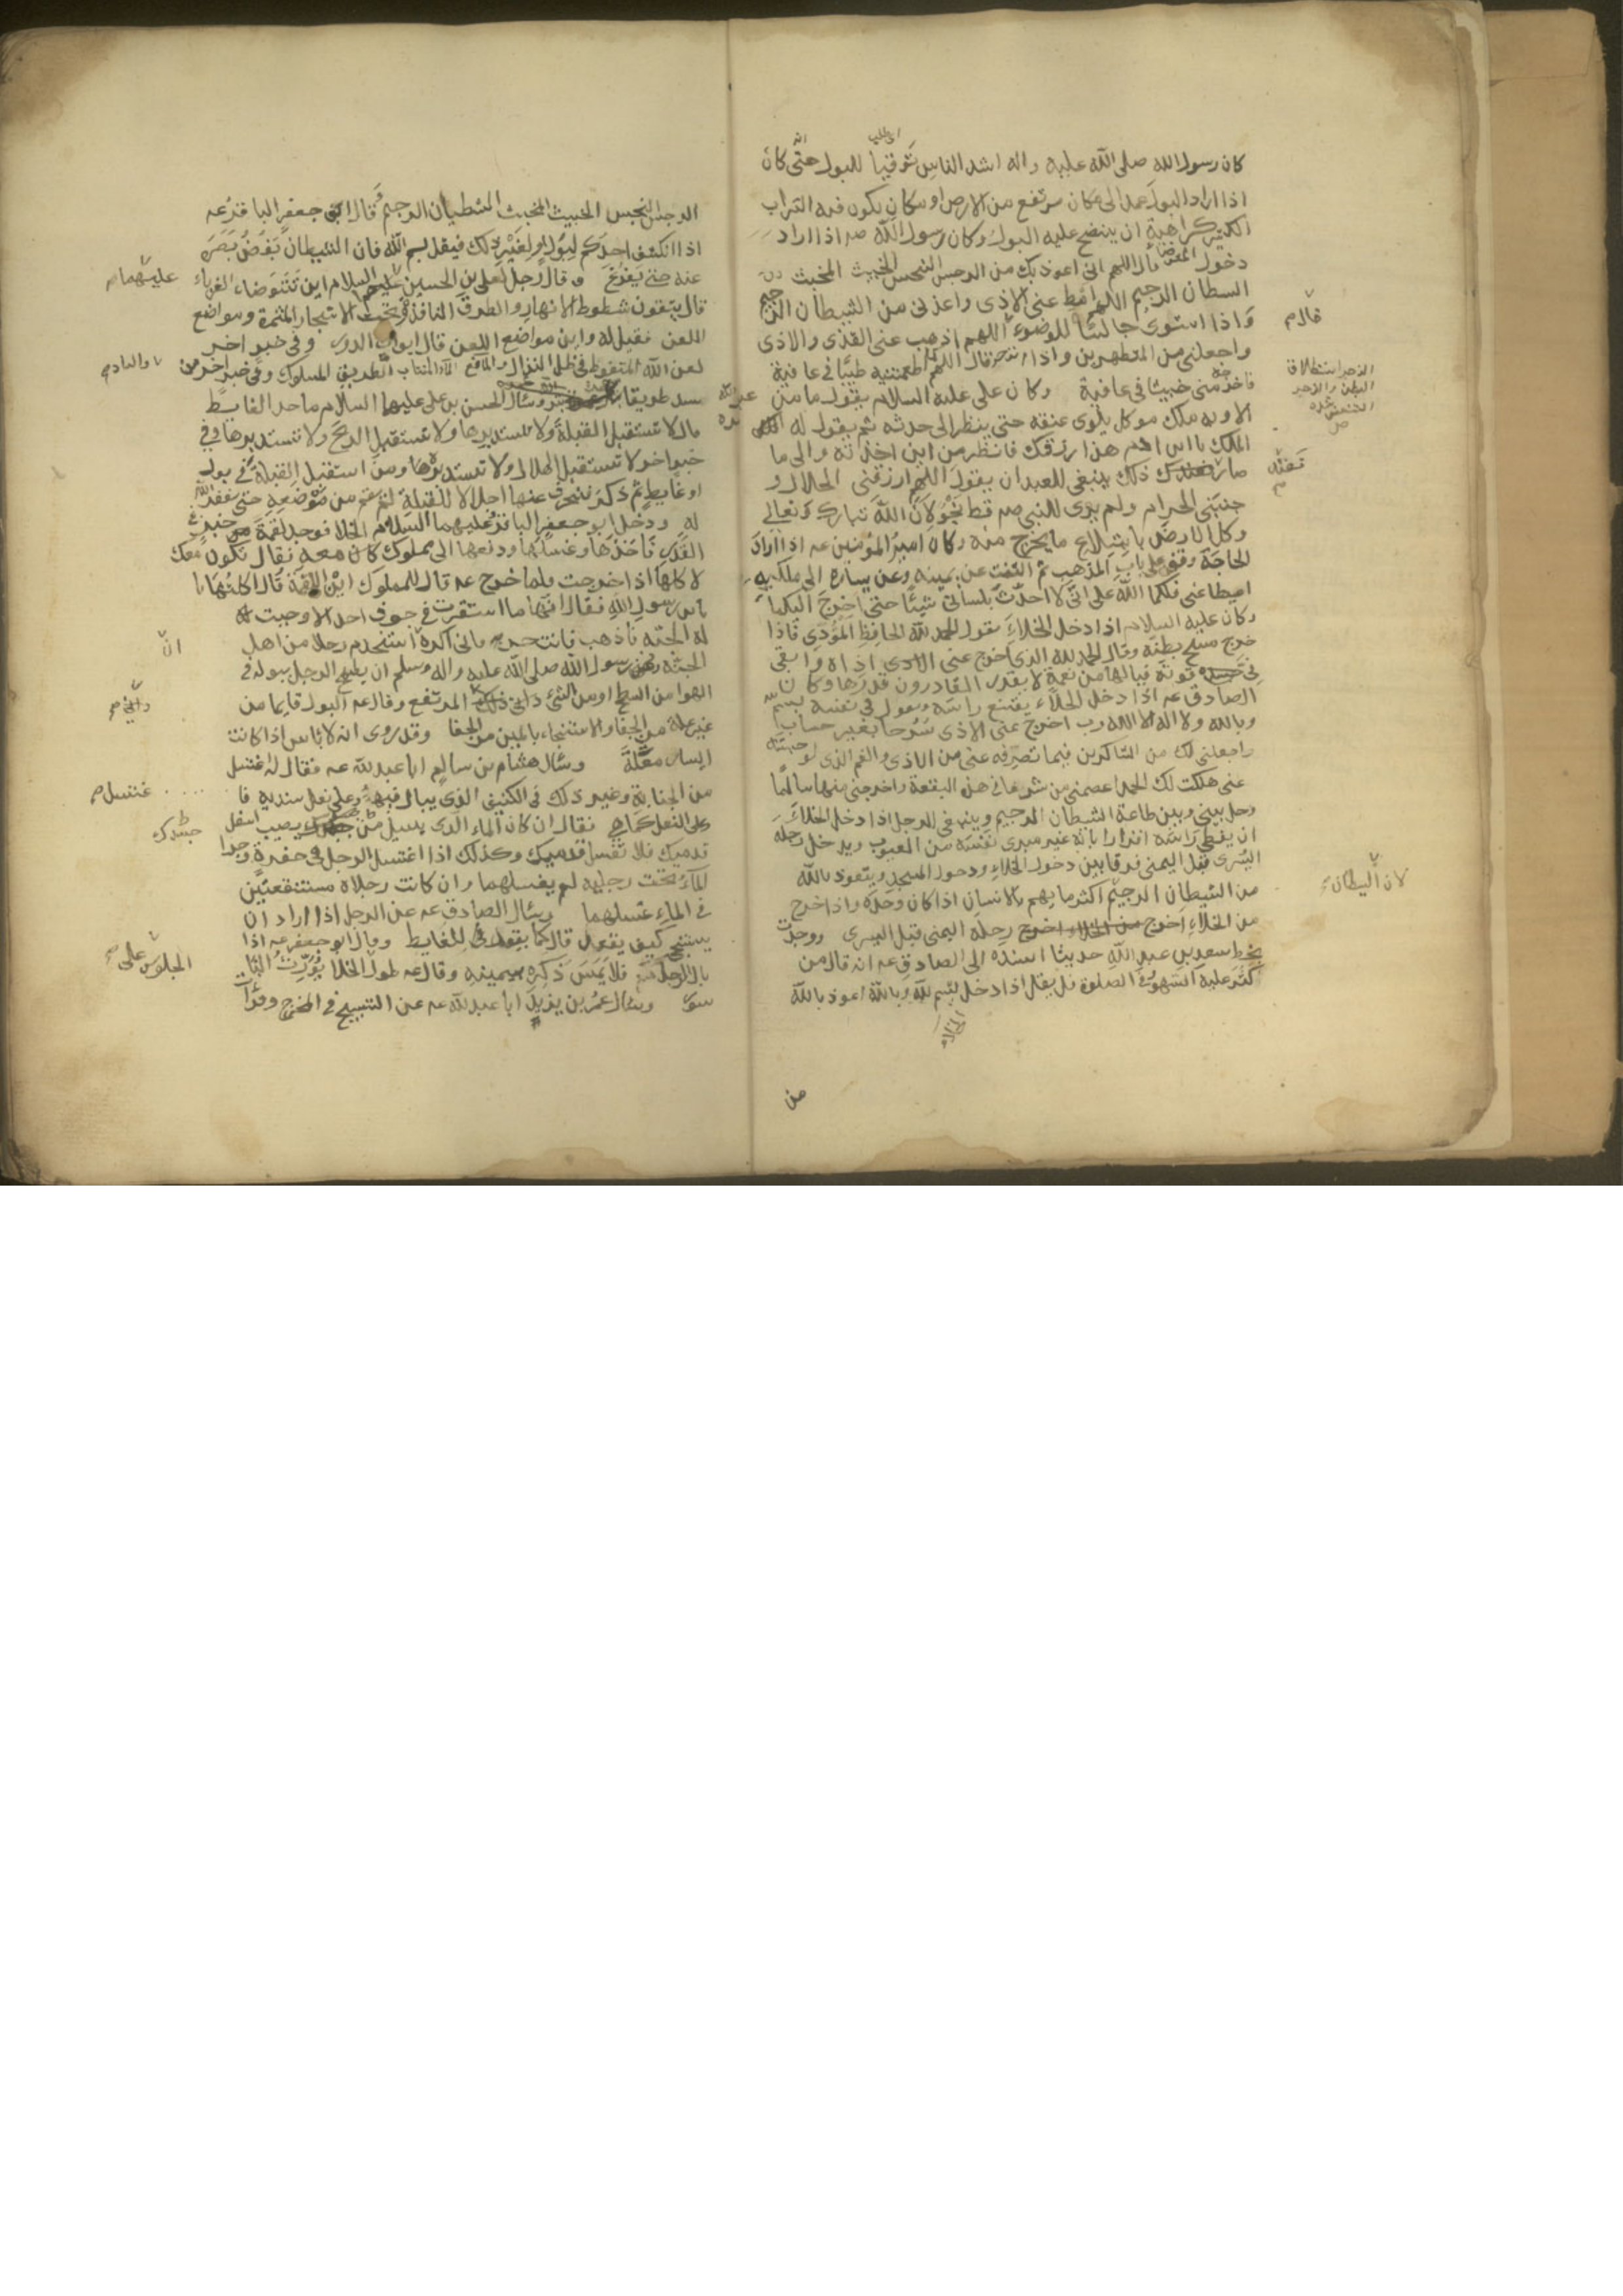 كان رسول الله صلى الله عليه واله اشد الناس توقيا للبول حتى كان
اذا اراد البول عمد الى مكان مرتفع من الارض او مكان يكون فيه التراب
الكثير كراهية ان ينضح عليه البول وكان رسول الله صم اذا اراد
دخول المتوضا قال اللهم انى اعوذ بك من الرجس النجس الخبيث المخبث
الشطان الرجيم اللهم امط عنى الاذى واعذنى من الشيطان الرجيم
واذا استوى جالسا للوضوء اللهم اذهب عنى القذى والاذى
قال م
واجعلنى من المتطهرين واذا تزحر قال اللهم اطعمتنيه طيبا فى عافية
فاخرجه منى خبيثا فى عافية وكان على عليه السلام يقول ما من عبد
الا وبه ملك موكل يلوى عنقه حتى ينظر الى حدثه ثم يقول له
الملك يا ابن ادم هذا رزقك فانظر من اين اخذته والى ما
صار فعند ذلك ينبغى للعبد ان يقول اللهم ارزقنى الحلال و
جنبنى الحرام ولم ير للنبى صم قط نجو لان الله تبارك وتعالى
وكل الارض بابتلاع ما يخرج منه وكان امير المؤمنين عه اذا اراد
الحاجة وقف على باب المذهب ثم التفت عن يمينه وعن يساره الى ملكيه
اميطا عنى فلكما الله على انى لا احدث بلسانى شيئا حتى اخرج اليكما
وكان عليه السلام اذا دخل الخلاء يقول الحمد لله الحافظ المؤدى فاذا
خرج مسح بطنه وقال الحمد لله الذى اخرج عنى الاذى اذاه وابقى
فى قوته فيا لها من نعمة لا يقدر القادرون قدرها وكان
الصادق عه اذا دخل الخلاء يقنع راسه ويقول فى نفسه بسم الله
وبالله ولا اله الا الله رب اخرج عنى الاذى سرحا بغير حساب
واجعلنى لك من الشاكرين فيما تصرفه عنى من الاذى والغم الذى لو حبسته
عنى هلكت لك الحمد اعصمنى من شر ما فى هذه البقعة واخرجنى منها سالما
وحل بينى وبين طاعة الشيطان الرجيم وينبغى للرجل اذا دخل الخلاء
ان يغطى راسه اقرارا بانه غير مبرى نفسه من العيوب ويدخل رجله
اليسرى قبل اليمنى فرقا بين دخول الخلاء ودخول المسجد ويتعوذ بالله
من الشيطان الرجيم اكثر ما يهم بالانسان اذا كان وحده واذا خرج
لان الشيطان
من الخلاء اخرج رجله اليمنى قبل اليسرى ووجدت
بخط سعد بن عبد الله حديثا اسنده الى الصادق عه انه قال من
كثر عليه السهو فى الصلوة فليقل اذا دخل بسم الله وبالله اعوذ بالله
الخلاء
من
الرجس النجس الخبيث المخبث الشطيان الرجيم وقال ابو جعفر الباقر عه
اذا انكشف احدكم لبول او لغير ذلك فيقل بسم الله فان الشيطان يغض بصره
عنه حتى يفرغ وقال رجل لعلى بن الحسين عليهما السلام اين تتوضاء الغرباء
عليهما م
قال يتقون شطوط الانهار والطرق النافذة وتحت الاشجار المثمرة ومواضع
اللعن فقيل له واين مواضع اللعن قال ابواب الدور وفى خبر اخر
لعن الله المتغوط فى ظل النزال والمانع الماء المنتاب والساد الطريق المسلوك وفى خبر اخر من
سد طريقا وسال الحسن بن على عليهما السلام ما حد الغايط
قال لا تستقبل القبلة ولا تستدبرها ولا تستقبل الريح ولا تستدبرها وفى
خبر اخر لا تستقبل الهلال ولا تستدبره ومن استقبل القبلة فى بول
او غايط ثم ذكر فتحرف عنها اجلالا للقبلة لم يقم من موضعه حتى يغفر الله
له ودخل ابو جعفر الباقر عليهما السلام الخلا فوجد لقمة خبز فى
القذر فاخذها وغسلها ودفعها الى مملوك كان معه فقال تكون معك
لاكلها اذا خرجت فلما خرج عه قال للمملوك اين اللقمة قال اكلتها يا
ابن رسول الله فقال انها ما استقرت فى جوف احد الا وجبت
له الجنة فاذهب فانت حر فانى اكره استخدم رجلا من اهل
ان
الجنة ونهى رسول الله صلى الله عليه واله وسلم ان يطمح الرجل ببوله فى
الهوا من السطح او من الشئ المرتفع وقال عه البول قايما من
غير علة من الجفا والاستنجاء باليمين من الجفا وقد روى انه لا باس اذا كانت
اليسار معتلة وسال هشام بن سالم ابا عبد الله عه فقال له اغتسل
من الجنابة وغير ذلك فى الكنيف الذى يبال فيه وعلى نعل سندية فا
غتسل م
على النعل كما هى فقال ان كان الماء الذى يسيل من جسدك يصيب اسفل
جسدك
قدميك فلا تغسل قدميك وكذلك اذا اغتسل الرجل فى حفرة وجرا
الماء تحت رجليه لم يغسلهما وان كانت رجلاه مستنقعتين
فى الماء غسلهما وسال الصادق عه عن الرجل اذا اراد ان
يستنجى كيف يقعد قال كما يقعد للغايط وقال ابو جعفر عه اذا
بال الرجل فلا يمس ذكره بيمينه وقال عه طول الخلا يورث البا
الجلوس على
سور وسال عمر بن يزيد ابا عبد الله عه عن التسبيح فى المخرج وقرات